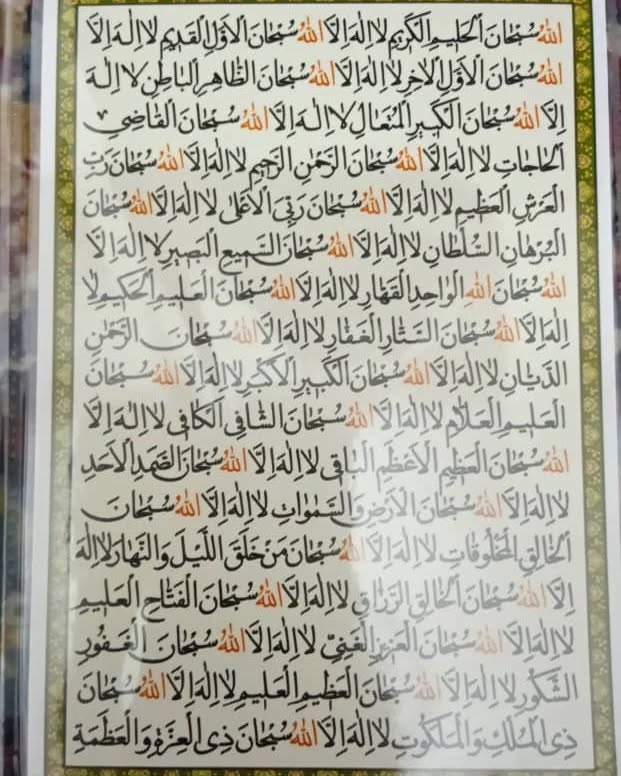 اللهُ سُبْحَانَ الْحَلِيْمِ الْكَرِيْمِ لَا اِلٰهَ اِلَّا اللهُ سُبْحَانَ الْاَوَّلِ الْقَدِيْمِ لَا اِلٰهَ اِلَّا
اللهُ سُبْحَانَ الْاَوَّلِ الْاٰخِرِ لَا اِلٰهَ اِلَّا اللهُ سُبْحَانَ الظَّاهِرِ الْبَاطِنِ لَا اِلٰهَ
اِلَّا اللهُ سُبْحَانَ الْكَبِيْرِ الْمُتَعَالِ لَا اِلٰهَ اِلَّا اللهُ سُبْحَانَ الْقَاضِي
الْحَاجَاتِ لَا اِلٰهَ اِلَّا اللهُ سُبْحَانَ الرَّحْمٰنِ الرَّحِيْمِ لَا اِلٰهَ اِلَّا اللهُ سُبْحَانَ رَبِّ
الْعَرْشِ الْعَظِيْمِ لَا اِلٰهَ اِلَّا اللهُ سُبْحَانَ رَبِّيَ الْاَعْلٰى لَا اِلٰهَ اِلَّا اللهُ سُبْحَانَ
الْبُرْهَانِ السُّلْطَانِ لَا اِلٰهَ اِلَّا اللهُ سُبْحَانَ السَّمِيْعِ الْبَصِيْرِ لَا اِلٰهَ اِلَّا
اللهُ سُبْحَانَ اللهِ الْوَاحِدِ الْقَهَّارِ لَا اِلٰهَ اِلَّا اللهُ سُبْحَانَ الْعَلِيْمِ الْحَكِيْمِ لَا
اِلٰهَ اِلَّا اللهُ سُبْحَانَ السَّتَّارِ الْغَفَّارِ لَا اِلٰهَ اِلَّا اللهُ سُبْحَانَ الرَّحْمٰنِ
الدَّيَّانِ لَا اِلٰهَ اِلَّا اللهُ سُبْحَانَ الْكَبِيْرِ الْاَكْبَرِ لَا اِلٰهَ اِلَّا اللهُ سُبْحَانَ
الْعَلِيْمِ الْعَلَّامِ لَا اِلٰهَ اِلَّا اللهُ سُبْحَانَ الشَّافِي الْكَافِي لَا اِلٰهَ اِلَّا
اللهُ سُبْحَانَ الْعَظِيْمِ الْاَعْظَمِ الْبَاقِي لَا اِلٰهَ اِلَّا اللهُ سُبْحَانَ الصَّمَدِ الْاَحَدِ
لَا اِلٰهَ اِلَّا اللهُ سُبْحَانَ الْاَرْضِ وَالسَّمٰوَاتِ لَا اِلٰهَ اِلَّا اللهُ سُبْحَانَ
الْخَالِقِ الْمَخْلُوقَاتِ لَا اِلٰهَ اِلَّا اللهُ سُبْحَانَ مَنْ خَلَقَ اللَّيْلَ وَالنَّهَارَ لَا اِلٰهَ
اِلَّا اللهُ سُبْحَانَ الْخَالِقِ الرَّزَّاقِ لَا اِلٰهَ اِلَّا اللهُ سُبْحَانَ الْفَتَّاحِ الْعَلِيْمِ
لَا اِلٰهَ اِلَّا اللهُ سُبْحَانَ الْعَزِيْزِ الْغَنِيِّ لَا اِلٰهَ اِلَّا اللهُ سُبْحَانَ الْغَفُوْرِ
الشَّكُوْرِ لَا اِلٰهَ اِلَّا اللهُ سُبْحَانَ الْعَظِيْمِ الْعَلِيْمِ لَا اِلٰهَ اِلَّا اللهُ سُبْحَانَ
ذِي الْمُلْكِ وَالْمَلَكُوْتِ لَا اِلٰهَ اِلَّا اللهُ سُبْحَانَ ذِي الْعِزَّةِ وَالْعَظَمَةِ